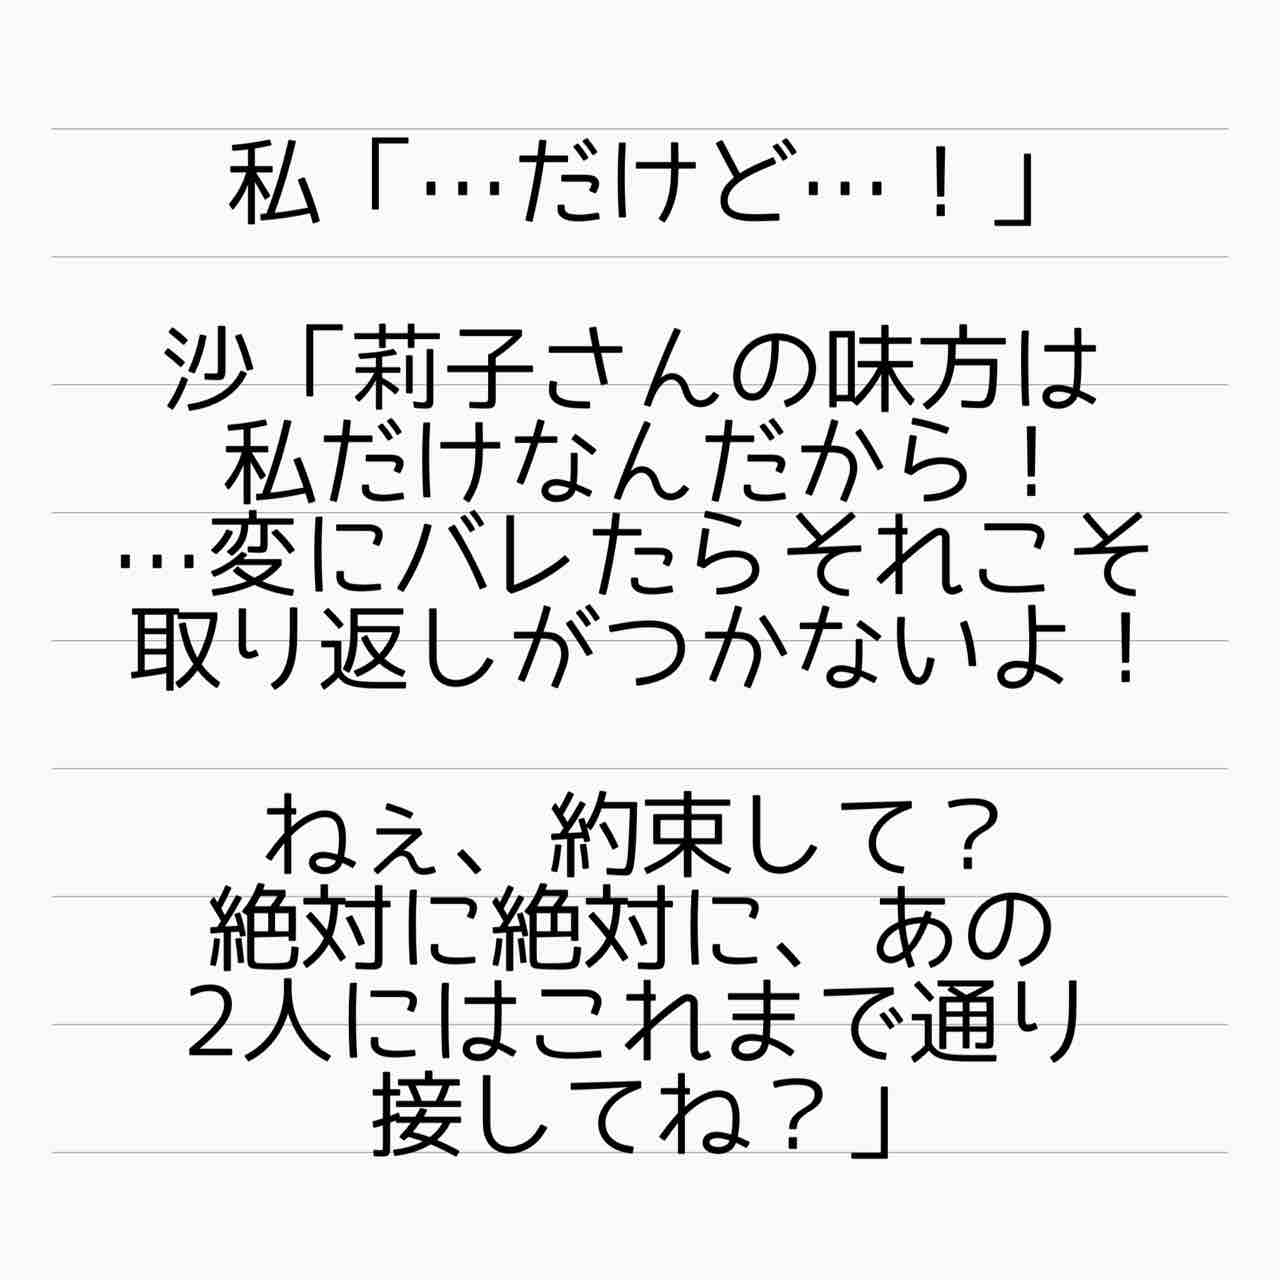 私「…だけど…！」
沙「莉子さんの味方は
私だけなんだから！
…変にバレたらそれこそ
取り返しがつかないよ！
ねぇ、約束して？
絶対に絶対に、あの
2人にはこれまで通り
接してね？」